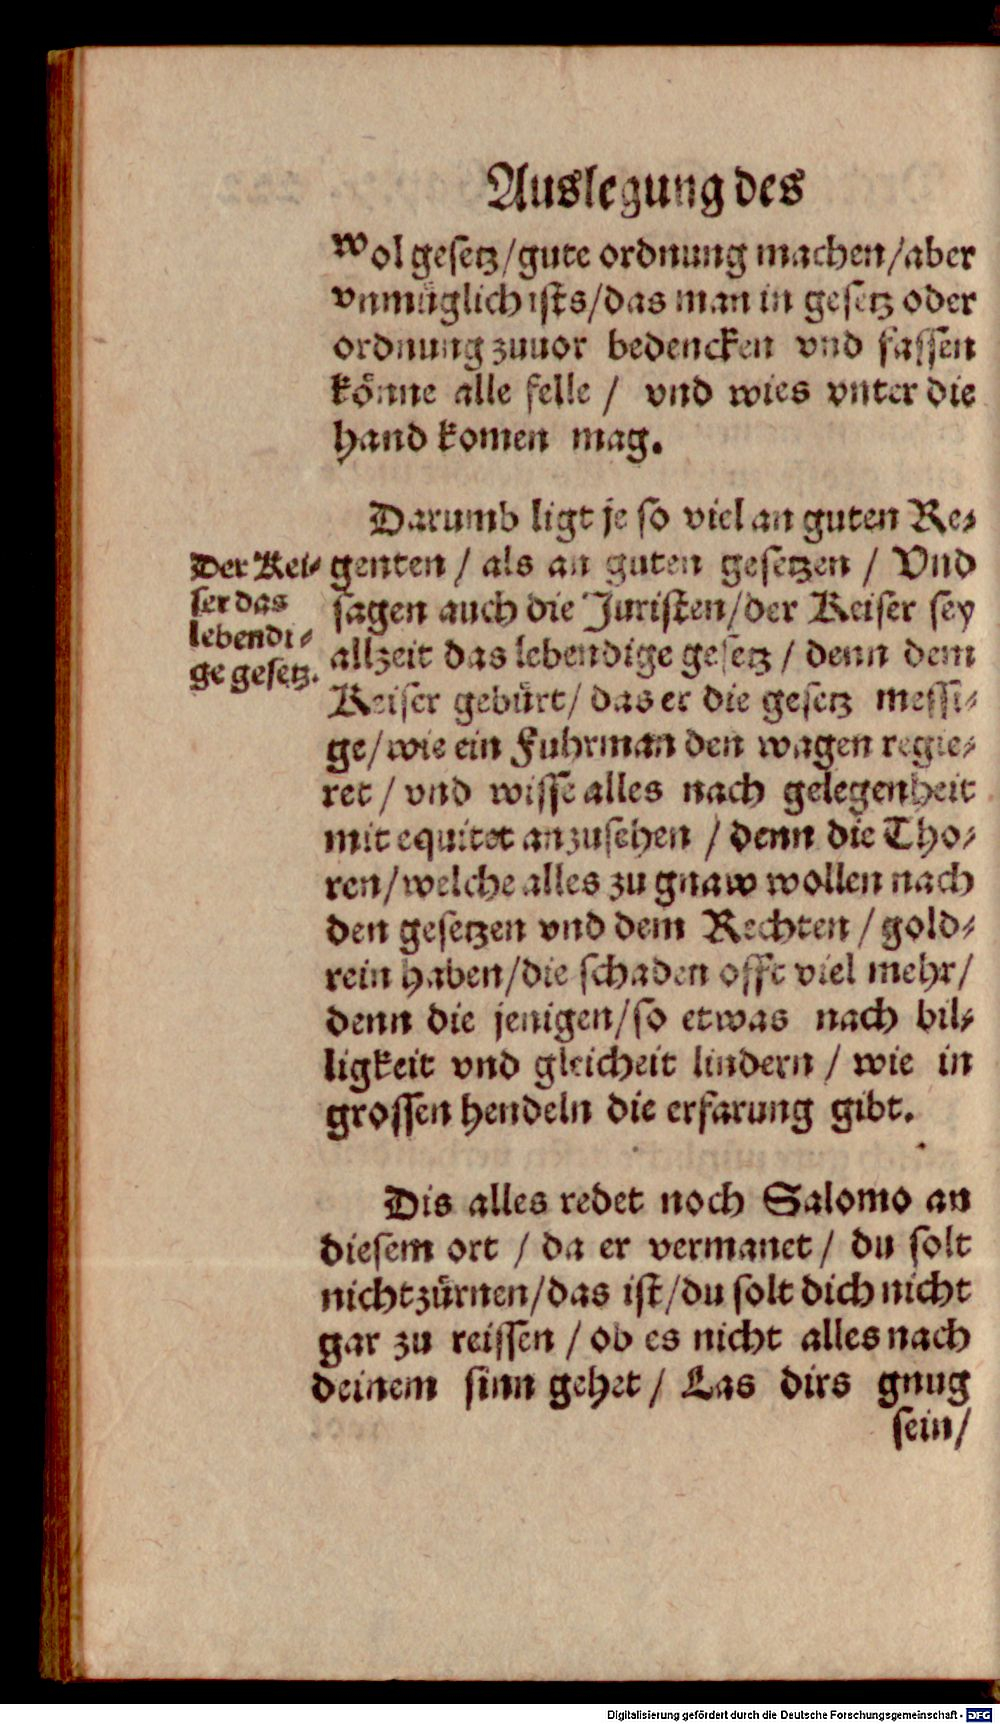 Auslegung des
wol gesetz/gute ordnung machen/aber
vnmüglich ists/das man in gesetz oder
ordnung zuuor bedencken vnd fassen
könne alle felle / vnd wies vnter die
hand komen mag.
Darumb ligt je so viel an guten Re⸗
genten / als an guten gesetzen / Vnd
sagen auch die Juristen/der Keiser sey
allzeit das lebendige gesetz / denn dem
Keiser gebürt/ das er die gesetz messi⸗
ge/wie ein Fuhrman den wagen regie⸗
ret / vnd wisse alles nach gelegenheit
mit equitet anzusehen / denn die Tho⸗
ren/welche alles zu gnaw wollen nach
den gesetzen vnd dem Rechten / gold⸗
rein haben/die schaden offt viel mehr/
denn die jenigen/so etwas nach bil⸗
ligkeit vnd gleicheit lindern / wie in
grossen hendeln die erfarung gibt.
Der Kei⸗
ser das
lebendi⸗
ge gesetz.
Dis alles redet noch Salomo an
diesem ort / da er vermanet / du solt
nicht zürnen/das ist/du solt dich nicht
gar zu reissen / ob es nicht alles nach
deinem sinn gehet / Las dirs gnug
sein/
Digitalisierung gefördert durch die Deutsche Forschungsgemeinschaft - DFG